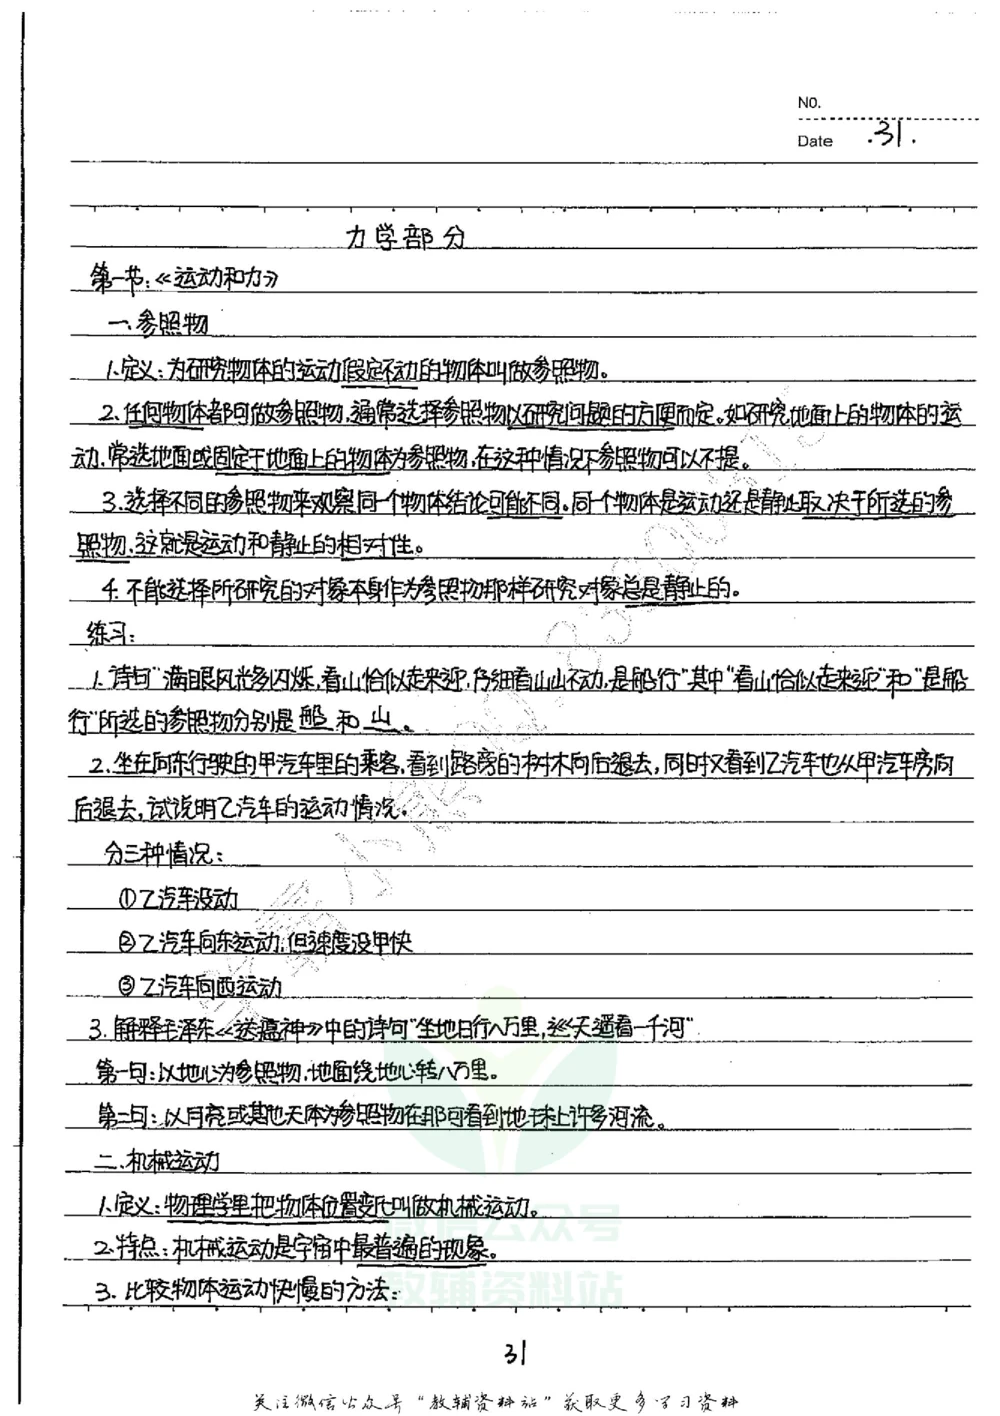 NO.
Date .31.
力学部分
第一节:《运动和力》
一.参照物
1.定义:为研究物体的运动假定不动的物体叫做参照物。
2.任何物体都可做参照物,通常选择参照物以研究问题的方便而定。如研究地面上的物体的运
动,常选地面或固定于地面上的物体为参照物,在这种情况下参照物可以不提。
3.选择不同的参照物来观察同一个物体结论可能不同。同一个物体是运动还是静止取决于所选的参
照物,这就是运动和静止的相对性。
4.不能选择所研究的对象本身作为参照物那样研究对象总是静止的。
练习:
1.诗句"满眼风光多闪烁,看山恰似走来迎,仔细看山山不动,是船行"其中"看山恰似走来迎"和"是船
行"所选的参照物分别是 船 和 山 。
2.坐在向东行驶的甲汽车里的乘客,看到路旁的树木向后退去,同时又看到乙汽车也从甲汽车旁向
后退去,试说明乙汽车的运动情况。
分三种情况:
①乙汽车没动
②乙汽车向东运动,但速度没甲快
③乙汽车向西运动
3.解释毛泽东《送瘟神》中的诗句"坐地日行八万里,巡天遥看一千河"
第一句:以地心为参照物,地面绕地心转八万里。
第二句:以月亮或其他天体为参照物在那可看到地球上许多河流。
二.机械运动
1.定义:物理学里把物体位置变化叫做机械运动。
2.特点:机械运动是宇宙中最普遍的现象。
3.比较物体运动快慢的方法:
微信公众号
教辅资料站
31
关注微信公众号"教辅资料站"获取更多学习资料